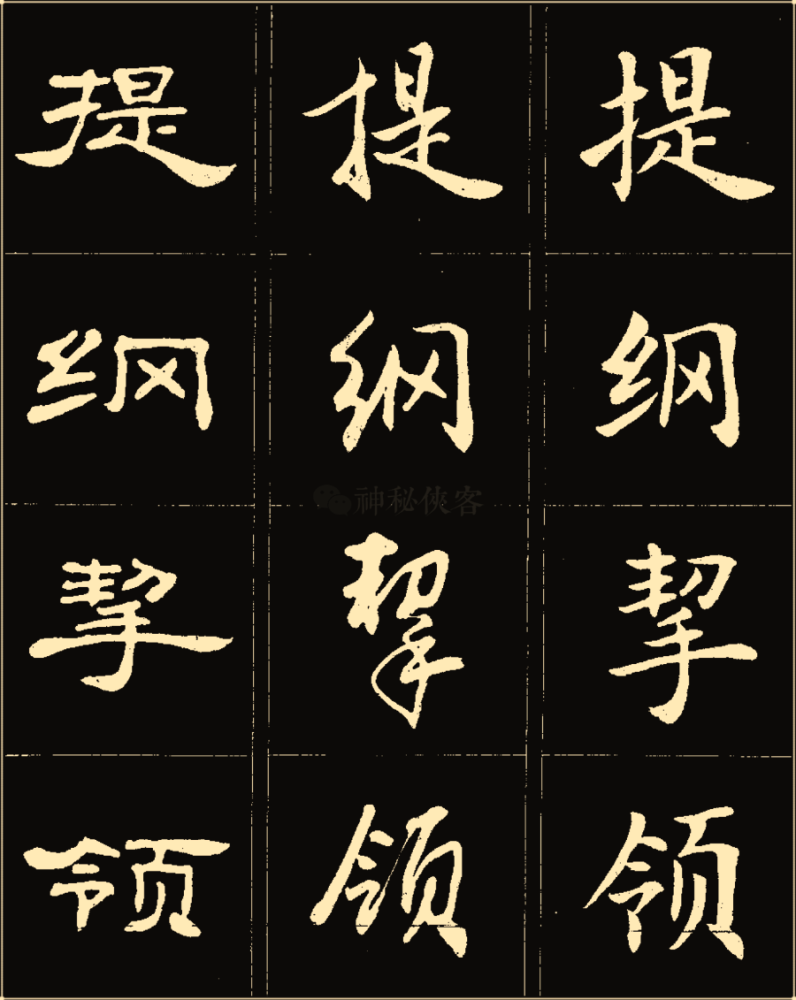 提 提 提
纲 纲 纲
神秘侠客
挈 挈 挈
领 领 领